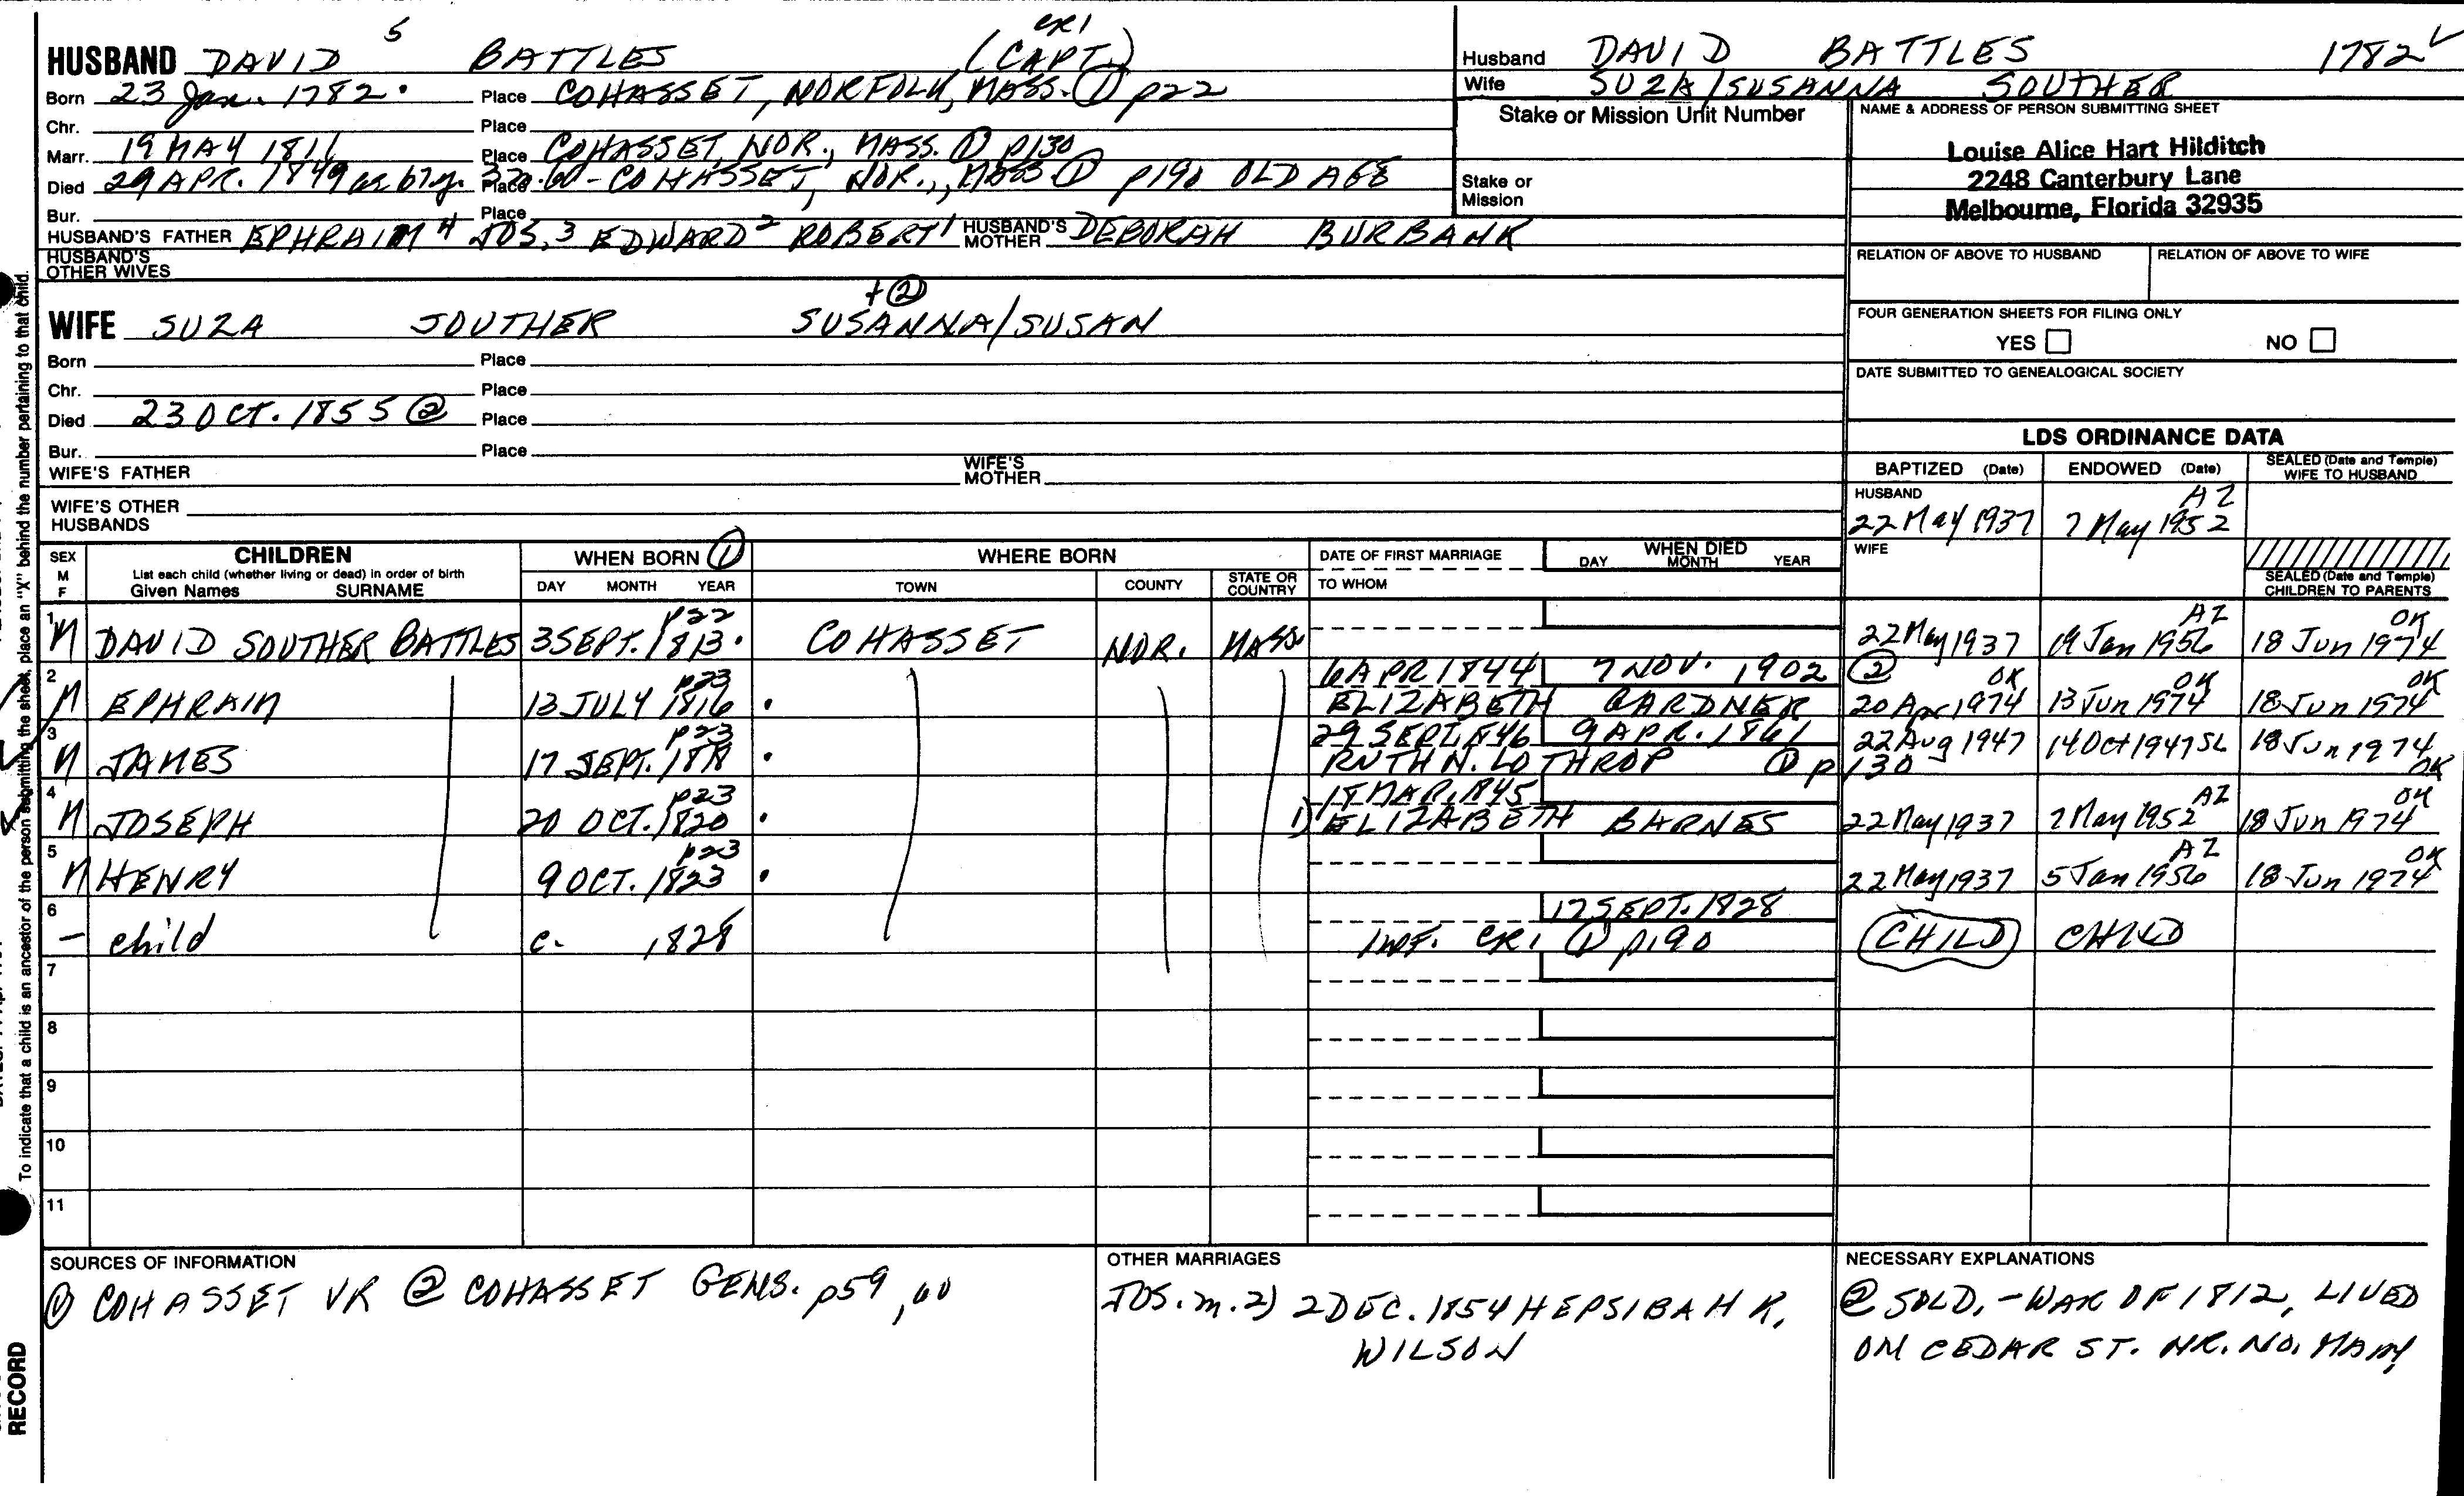 5 CR1
HUSBAND DAVID BATTLES (CAPT.)
Born 23 Jan. 1782. Place COHASSET, NORFOLK, MASS. ① p22
Chr. Place
Marr. 19 MAY 1811 Place COHASSET, NOR., MASS. ① p130
Died 29 APR. 1849 ae 67y. Place COHASSET, NOR., MASS ① p190 OLD AGE
Bur. Place
HUSBAND'S FATHER EPHRAIM 4 JOS. 3 EDWARD 2 ROBERT 1 HUSBAND'S MOTHER DEBORAH BURBANK
HUSBAND'S OTHER WIVES
Husband DAVID BATTLES 1782
Wife SUZA/SUSANNA SOUTHER
Stake or Mission Unit Number
Stake or Mission
NAME & ADDRESS OF PERSON SUBMITTING SHEET
Louise Alice Hart Hilditch
2248 Canterbury Lane
Melbourne, Florida 32935
RELATION OF ABOVE TO HUSBAND RELATION OF ABOVE TO WIFE
FOUR GENERATION SHEETS FOR FILING ONLY
YES NO
DATE SUBMITTED TO GENEALOGICAL SOCIETY
+②
WIFE SUZA SOUTHER SUSANNA/SUSAN
Born Place
Chr. Place
Died 23 OCT. 1855 ② Place
Bur. Place
WIFE'S FATHER WIFE'S MOTHER
WIFE'S OTHER HUSBANDS
LDS ORDINANCE DATA
BAPTIZED (Date) ENDOWED (Date) SEALED (Date and Temple) WIFE TO HUSBAND
HUSBAND AZ
22 May 1937 7 May 1952
WIFE
SEALED (Date and Temple) CHILDREN TO PARENTS
SEX M F CHILDREN WHEN BORN ① WHERE BORN DATE OF FIRST MARRIAGE WHEN DIED
List each child (whether living or dead) in order of birth
Given Names SURNAME DAY MONTH YEAR TOWN COUNTY STATE OR COUNTRY TO WHOM DAY MONTH YEAR
1 p22 AZ OK
M DAVID SOUTHER BATTLES 3 SEPT. 1813. COHASSET NOR. MASS 22 May 1937 19 Jan 1956 18 Jun 1974
2 p23 6 APR 1844 7 NOV. 1902 ② OK OK OK
M EPHRAIM 13 JULY 1816. ELIZABETH GARDNER 20 Apr 1974 13 Jun 1974 18 Jun 1974
3 p23 29 SEPT. 1846 9 APR. 1861 22 Aug 1947 14 Oct 1947 SL 18 Jun 1974
M JAMES 17 SEPT. 1818. RUTH N. LOTHROP ① p130 OK
4 p23 18 MAR. 1845 AZ OK
M JOSEPH 20 OCT. 1820. 1) ELIZABETH BARNES 22 May 1937 7 May 1952 18 Jun 1974
5 p23 AZ OK
M HENRY 9 OCT. 1823. 22 May 1937 5 Jan 1956 18 Jun 1974
6 17 SEPT. 1828
- child c. 1828 INF. CR1 ① p190 CHILD CHILD
7
8
9
10
11
SOURCES OF INFORMATION
① COHASSET VR ② COHASSET GENS. p59, 60
OTHER MARRIAGES
JOS. m. 2) 2 DEC. 1854 HEPSIBAH K. WILSON
NECESSARY EXPLANATIONS
② SOLD. - WAR OF 1812, LIVED
ON CEDAR ST. NR. NO. MAIN
To indicate that a child is an ancestor of the person submitting the sheet, place an "X" behind the number pertaining to that child.
RECORD